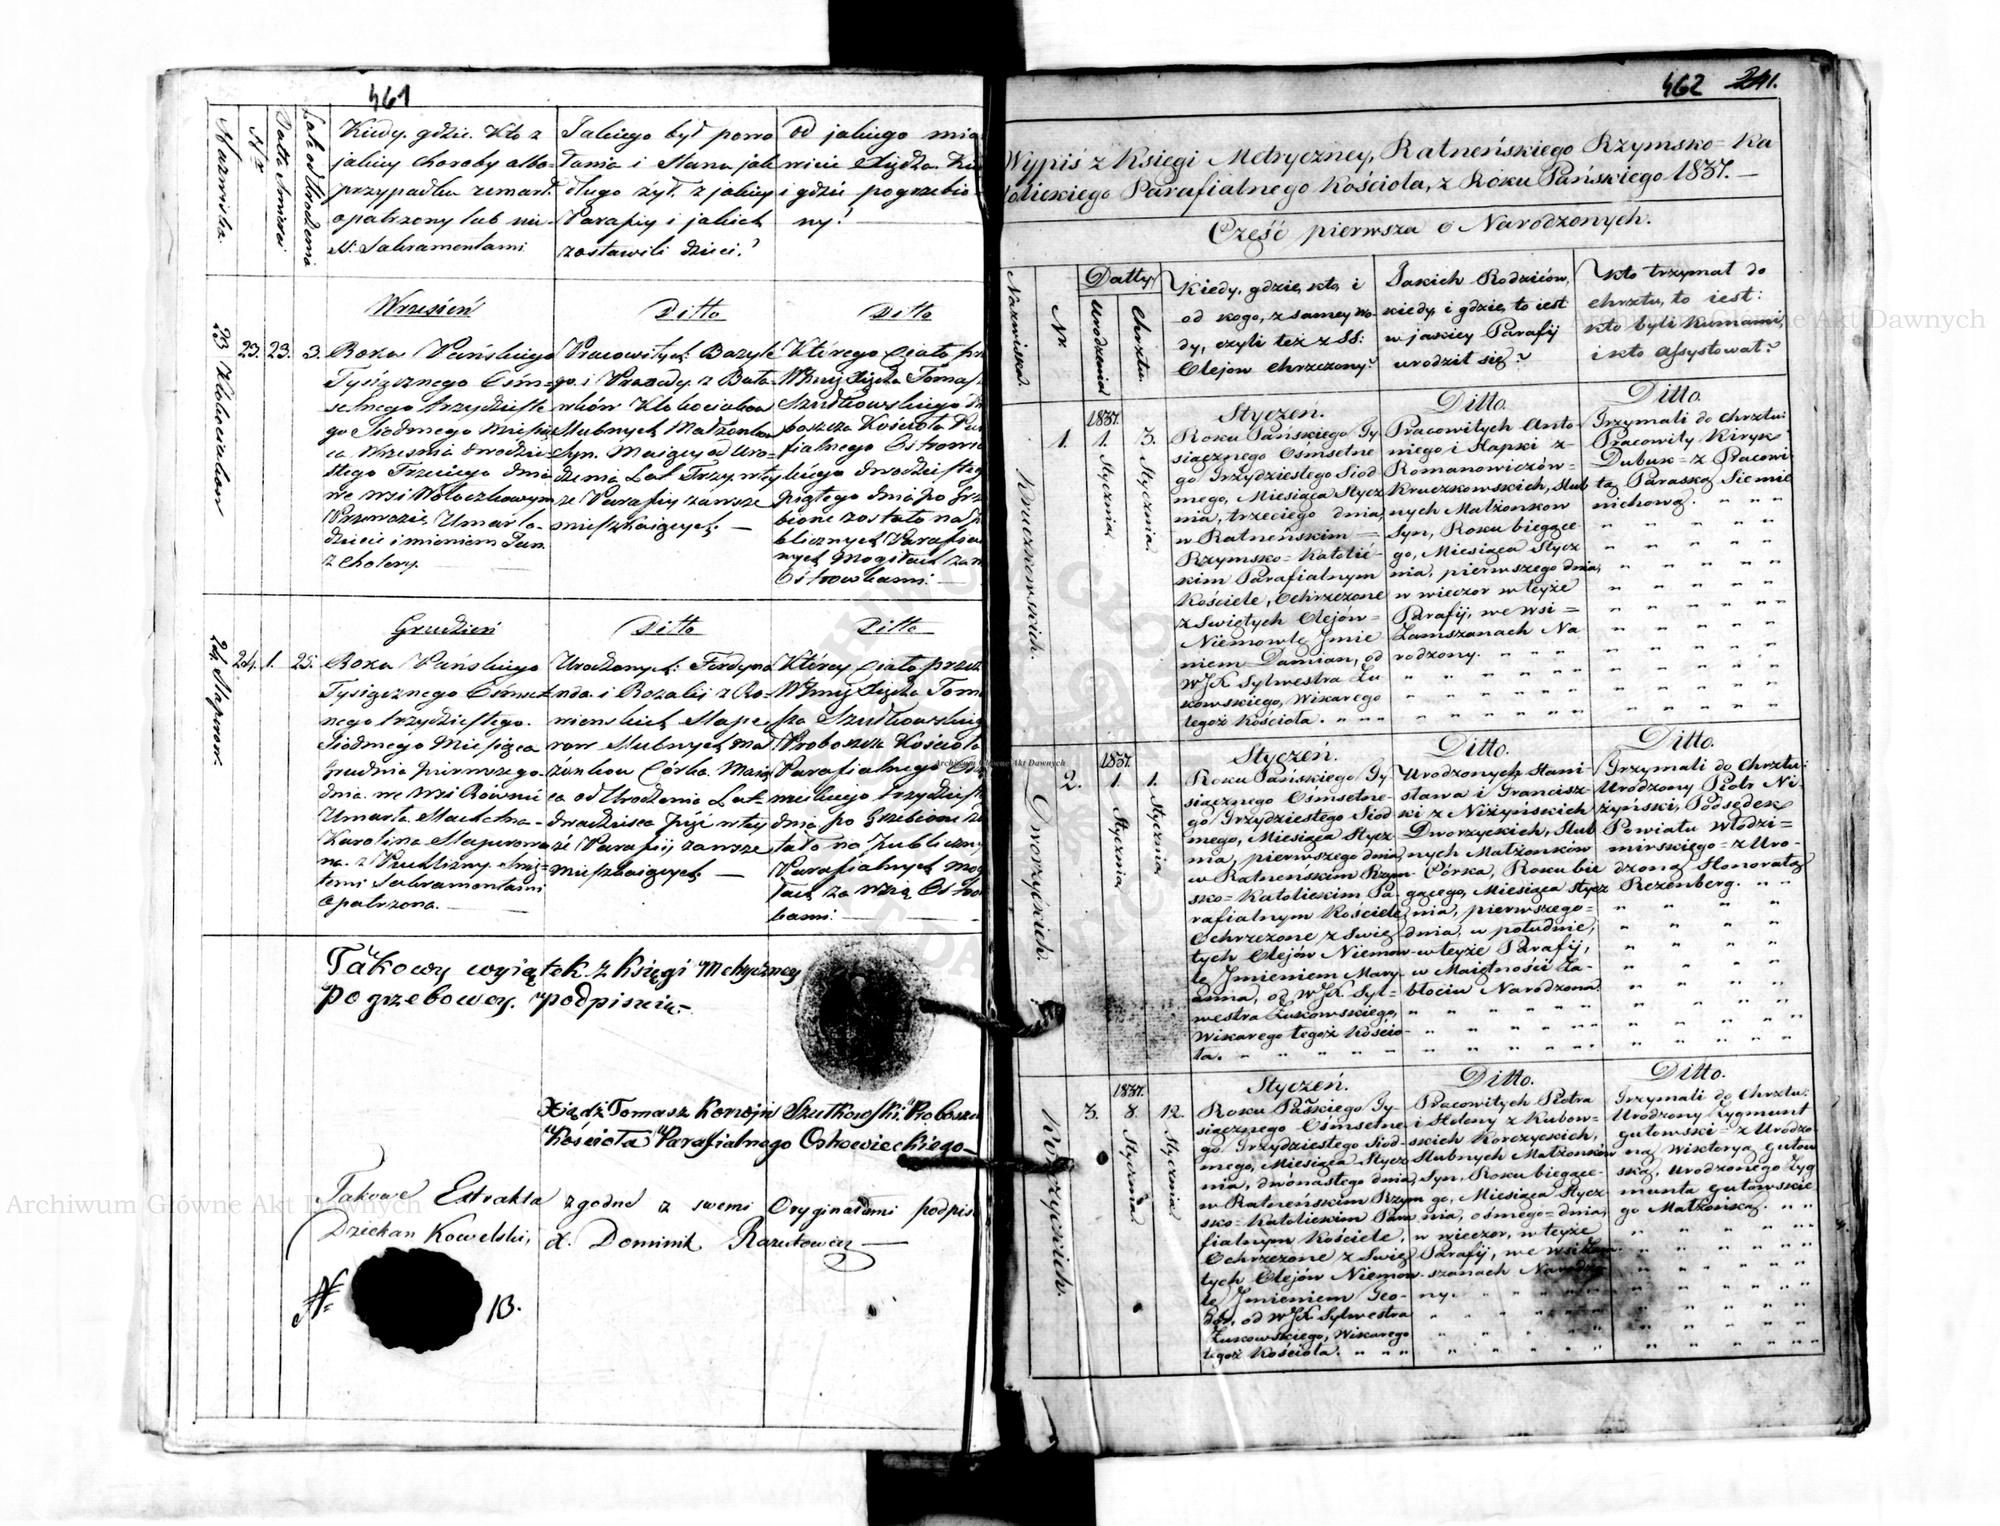 461
Nazwiska.
Nr
Datta Śmierci
Lata od Urodzenia
Kiedy, gdzie, Kto z
jakiey choroby albo
przypadku zmarł
opatrzony lub nie
Śś. Sakramentami
Jakiego był powo
łania i Stanu jak
długo żył, z jakiey
Parafii i jakich
zostawili dzieci?
od jakiego
i gdzie pogrzebio
ny?
Wrzesień
Ditto
Ditto
23.
23.
3.
Roku Pańskiego
Tysiącznego Ośm-
setnego trzydzieste
go Siódmego Miesią
ca Września dwudzie-
stego Trzeciego dnia
we wsi
Umarło
dziecie imieniem Jan
z Cholery.
Pracowitych Bazyle
go i
Ślubnych Małżonków
Syn, Maiący od Uro-
dzenia Lat Trzy, w tey
że Parafii zawsze
mieszkaiących. —
Którego Ciało przez
Szutkowskiego
Kościoła Para
fialnego
dwudziestego
piątego dnia po Grze
bione zostało na pu
blicznych Parafial
nych Mogiłach za
Grudzień
Ditto
Ditto
24.
1.
25.
Roku Pańskiego
Tysiącznego Ośmset
nego trzydziestego
Siódmego Miesiąca
Grudnia pierwszego
dnia we wsi Równie
Umarła Szlachetna
Karolina
na z
temi Sakramentami
Opatrzona.
Urodzonych Ferdyna
nda i Rozalij z
Ślubnych Mał
żonków Córka, Maią
ca od Urodzenia Lat
dwadzieścia pięć w tey
że Parafii zawsze
mieszkaiących —
Którey Ciało przez
Tomasza
Szutkowskiego
Proboszcza Kościoła
Parafialnego
dnia po Grzebione zo
stało na Publicznych
Parafialnych Mogi
łach za wsią
Takowy wyiątek z Księgi Metryczney
pogrzebowey, podpisuię.
Xiądz Tomasz Korwin Szutkowski Proboszcz
Kościoła Parafialnego Ostrowieckiego
Takowe Extrakta zgodne z swemi Oryginałami podpis
Dziekan Kowelski, X. Dominik
№ 13.
462 241.
Wypis z Księgi Metryczney, Ratneńskiego Rzymsko-Ka
tolickiego Parafialnego Kościoła, z Roku Pańskiego 1837. —
Część pierwsza o Narodzonych.
Nazwiska.
Nr.
Datty
Urodzenia
Chrztu
Kiedy, gdzie, kto, i
od kogo, z samey wo
dy, czyli też z SS:
Olejow chrzczony?
Jakich Rodziców,
kiedy, i gdzie, to iest
w jakiey Parafij
urodził się?
Kto trzymał do
chrztu, to iest:
kto byli kumami,
i kto assystował?
Kruczkowskich.
1.
1837.
1. Stycznia.
3. Stycznia.
Styczeń.
Roku Pańskiego Ty
siącznego Ośmsetne
go Trzydziestego Siód
mego, Miesiąca Stycz
nia, trzeciego dnia,
w Ratneńskim
Rzymsko-Katolic-
kim Parafialnym
Kościele, Ochrzczone
z Świętych Olejów
Niemowle Imie
niem Damian, od
WJX Sylwestra Żu
kowskiego, Wikarego
tegoż Kościoła. " " "
Ditto.
Pracowitych Anto
niego i Hapki z
Romanowiczów
Kruczkowskich, Ślub
nych Małżonków
Syn, Roku bieżące
go, Miesiąca Stycz
nia, pierwszego dnia,
w wieczor w teyże
Parafij, we wsi
Zamszanach Na
rodzony. " " "
Ditto.
Trzymali do chrztu:
Pracowity Kiryk
Dubuk z Pracowi
tą Paraską Siemie
nichową. " " "
Dworzyckich.
2.
1837.
1. Stycznia.
1. Stycznia.
Styczeń.
Roku Pańskiego Ty
siącznego Ośmsetne
go Trzydziestego Siód
mego, Miesiąca Stycz
nia, pierwszego dnia
w Ratneńskim Rzym
sko-Katolickim Pa
rafialnym Kościele
Ochrzczone z Świę
tych Olejów Niemow
le Imieniem Mary
anna, od WJX Syl
westra Żukowskiego,
Wikarego tegoż Kościo
ła. " " "
Ditto.
Urodzonych Stani
sława i Francisz
ki z Niżyńskich
Dworzyckich, Ślub
nych Małżonków
Córka, Roku bie
gącego, Miesiąca Stycz
nia, pierwszego
dnia, w południe,
w teyże Parafij,
w Maiętności Za
błociu Narodzona.
Ditto.
Trzymali do Chrztu:
Urodzony Piotr Ni
żyński, Podsędek
Powiatu Włodzi
mirskiego z Uro
dzoną Honoratą
Rezenberg. " "
Korzyckich.
3.
1837.
8. Stycznia.
12. Stycznia.
Styczeń.
Roku Pańskiego Ty
siącznego Ośmsetne
go Trzydziestego Siód
mego, Miesiąca Stycz
nia, dwónastego dnia,
w Ratneńskim Rzym
sko-Katolickim Para
fialnym Kościele,
Ochrzczone z Świę
tych Olejów Niemow
le Imieniem Teo
dor, od WJX Sylwestra
Żukowskiego, Wikarego
tegoż Kościoła. " " "
Ditto.
Pracowitych Piotra
i Heleny z Kubow
skich Korzyckich,
Ślubnych Małżonków
Syn, Roku bieżące
go, Miesiąca Stycz
nia, ósmego dnia,
w wieczor, w teyże
Parafij, we wsi Zam
szanach Narodzo
ny. " " "
Ditto.
Trzymali do Chrztu:
Urodzony Zygmunt
Gutowski z Urodzo
ną Wiktoryą Gutow
ską, Urodzonego Zyg
munta Gutowskie
go Małżonką. " "
Archiwum Główne Akt Dawnych
Archiwum Główne Akt Dawnych
Archiwum Główne Akt Dawnych